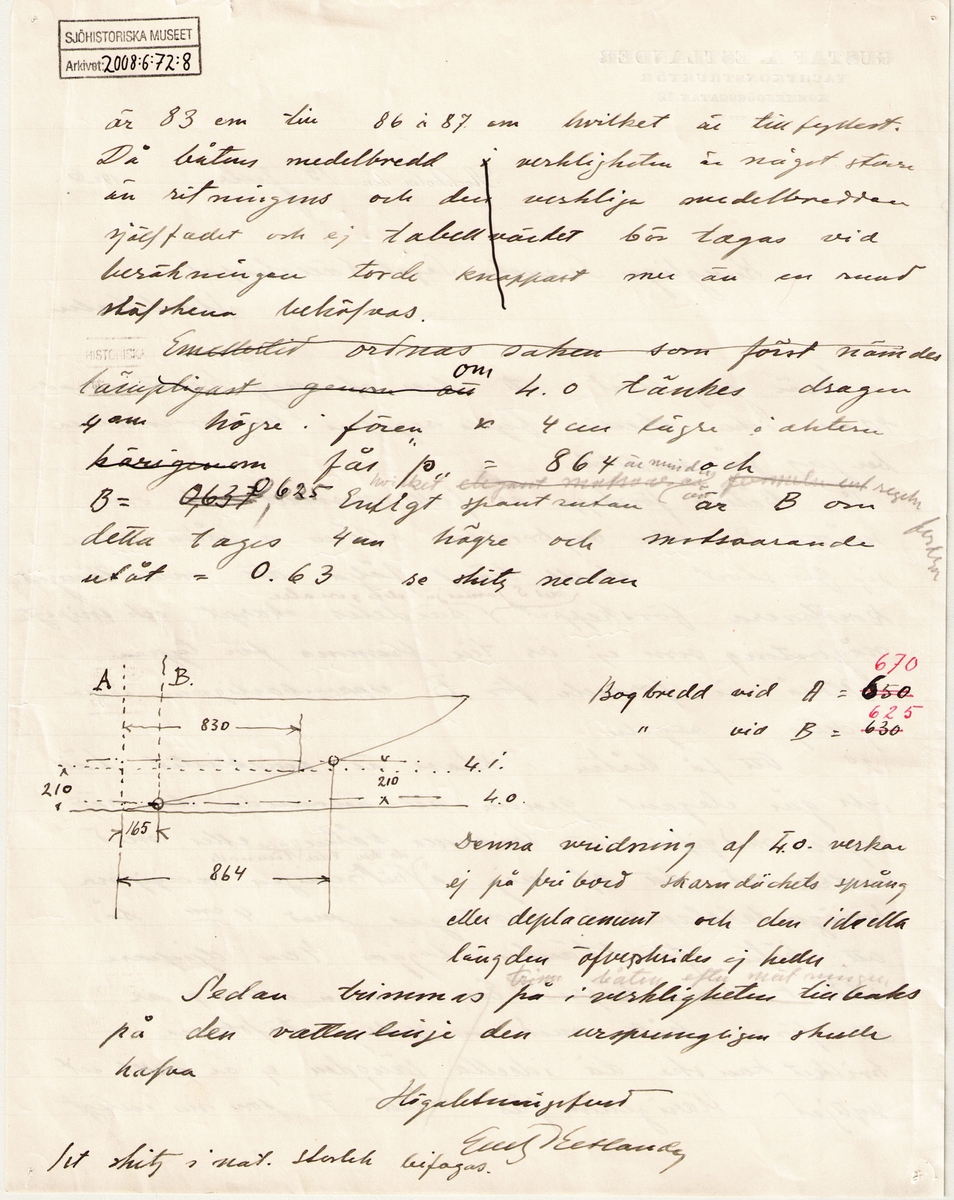 SJÖHISTORISKA MUSEET
Arkivet: 2008:6:72:8
GUSTAF A. ESTLANDER
YACHTKONSTRUKTÖR
är 83 cm till 86 à 87 cm hvilket är tillfyllest.
Då båtens medelbredd i verkligheten är något större
än ritningens och den verkliga medelbredden
självfadet och ej tabellvärdet bör tagas vid
beräkningen torde knappast mer än en rund
stäfskena behöfvas.
HISTORISKA
Emellertid ordnas saken som först nämdes
lämpligast genom att om 4.0 tänkes dragen
4 cm högre i fören & 4 cm lägre i aktern
härigenom fås "p" = 864 och
är mindre
hvilket
regeln
B = 0,637 0,625 Enligt spantrutan är B om
detta tages 4 cm högre och motsvarande
utåt = 0.63 se skitz nedan
A B.
830
210
210
4.1.
4.0.
165
864
670
Bogbredd vid A = 650
625
" vid B = 630
Denna vridning af 4.0. verkar
ej på fribord skarndäckets språng
eller deplacement och den ideella
längden öfverskrides ej heller.
trimm båten efter mätningen
Sedan trimmas på i verkligheten tillbaks
på den vattenlinje den ursprungligen skulle
hafva
Högaktningsfullt
Gust Estlander
1 st skitz i nat. storlek bifogas.